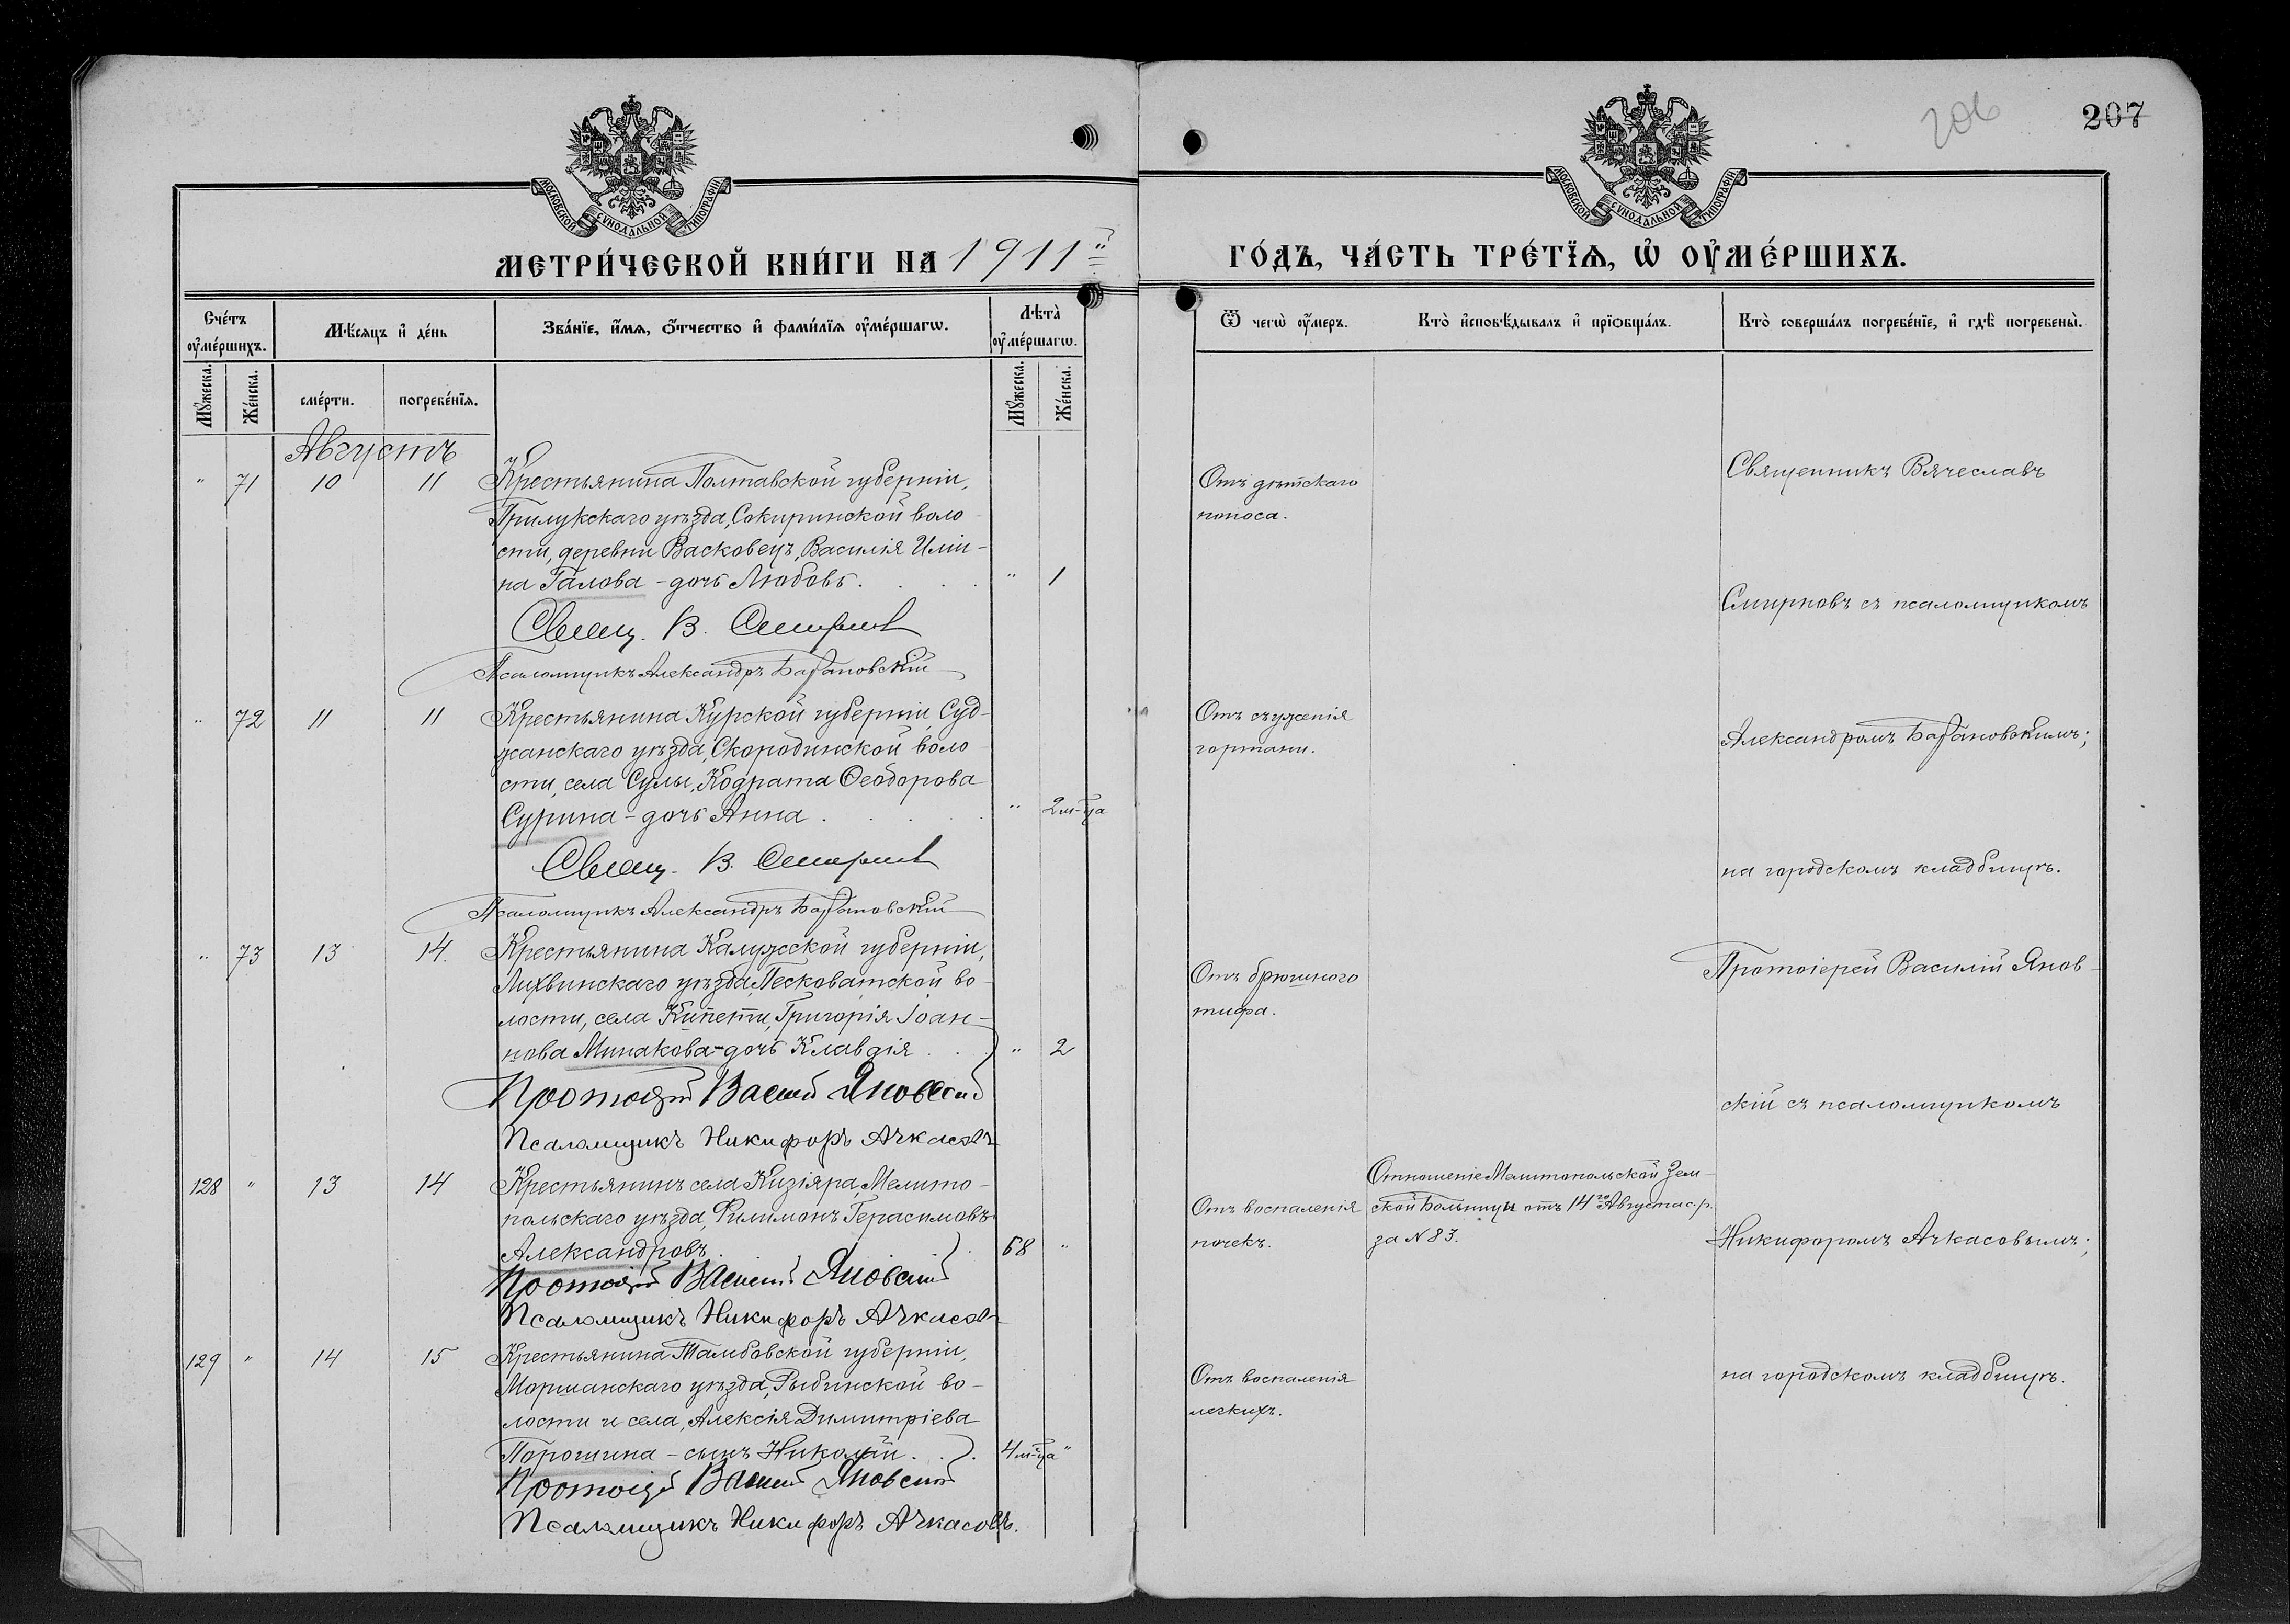 206
207
МОСКОВСКОЙ СУНОДАЛЬНОЙ ТИПОГРАФІИ
МОСКОВСКОЙ СУНОДАЛЬНОЙ ТИПОГРАФІИ
МЕТРИ́ЧЕСКОЙ КНИ́ГИ НА 1911й
ГО́ДЪ, ЧА́СТЬ ТРЕ́ТЇѦ, Ѡ҆ ОУ҆МЕ́РШИХЪ.
Сче́тъ оу҆ме́ршихъ.
Мѣ́сѧцъ и҆ де́нь
Зва́нїе, и҆́мѧ, ѻ҆́тчество и҆ фами́лїѧ оу҆ме́ршагѡ.
Лѣта̀ оу҆ме́ршагѡ.
Ѿ чегѡ̀ оу҆́меръ.
Кто̀ и҆сповѣ́дывалъ и҆ прїѡбща́лъ.
Кто̀ соверша́лъ погребе́нїе, и҆ гдѣ̀ погребены̀.
Мꙋ́жеска.
Же́нска.
сме́рти.
погребе́нїѧ.
Мꙋ́жеска.
Же́нска.
Августъ
" 71 10 11 Крестьянина Полтавской губерніи,
Прилукскаго уѣзда, Сокиринской воло
сти, деревни Васковецъ, Василія Иліи-
на Галова - дочь Любовь. " 1
Свящ. В. Смирновъ
Псаломщикъ Александръ Барановскій
Отъ дѣтскаго
поноса.
Священникъ Вячеславъ
Смирновъ съ псаломщикомъ
" 72 11 11 Крестьянина Курской губерніи, Суд-
жанскаго уѣзда, Скородинской воло
сти, села Сулы, Кодрата Ѳеодорова
Сурина - дочь Анна. " 2 м-ца
Свящ. В. Смирновъ
Псаломщикъ Александръ Барановскій
Отъ съуженія
гортани.
Александромъ Барановскимъ;
на городскомъ кладбищѣ.
" 73 13 14. Крестьянина Калужской губерніи,
Лихвинскаго уѣзда, Песковатской во-
лости, села Кипети, Григорія Іоан-
нова Минакова - дочь Клавдія. " 2
Протоіерей Василій Яновскій
Псаломщикъ Никифоръ Ачкасовъ
Отъ брюшного
тифа.
Протоіерей Василій Янов-
скій съ псаломщикомъ
128 " 13 14 Крестьянинъ села Кизіяра, Мелито-
польскаго уѣзда, Филимонъ Герасимовъ
Александровъ. 68 "
Протоіерей Василій Яновскій
Псаломщикъ Никифоръ Ачкасовъ
Отъ воспаленія
почекъ.
Отношеніе Мелитопольской Зем-
ской Больницы отъ 14го Августа с.г.
за № 83.
Никифоромъ Ачкасовымъ;
129 " 14 15 Крестьянина Тамбовской губерніи,
Моршанскаго уѣзда, Рыбинской во-
лости и села, Алексія Димитріева
Порошина - сынъ Николай. 4 м-ца "
Протоіерей Василій Яновскій
Псаломщикъ Никифоръ Ачкасовъ.
Отъ воспаленія
легкихъ.
на городскомъ кладбищѣ.